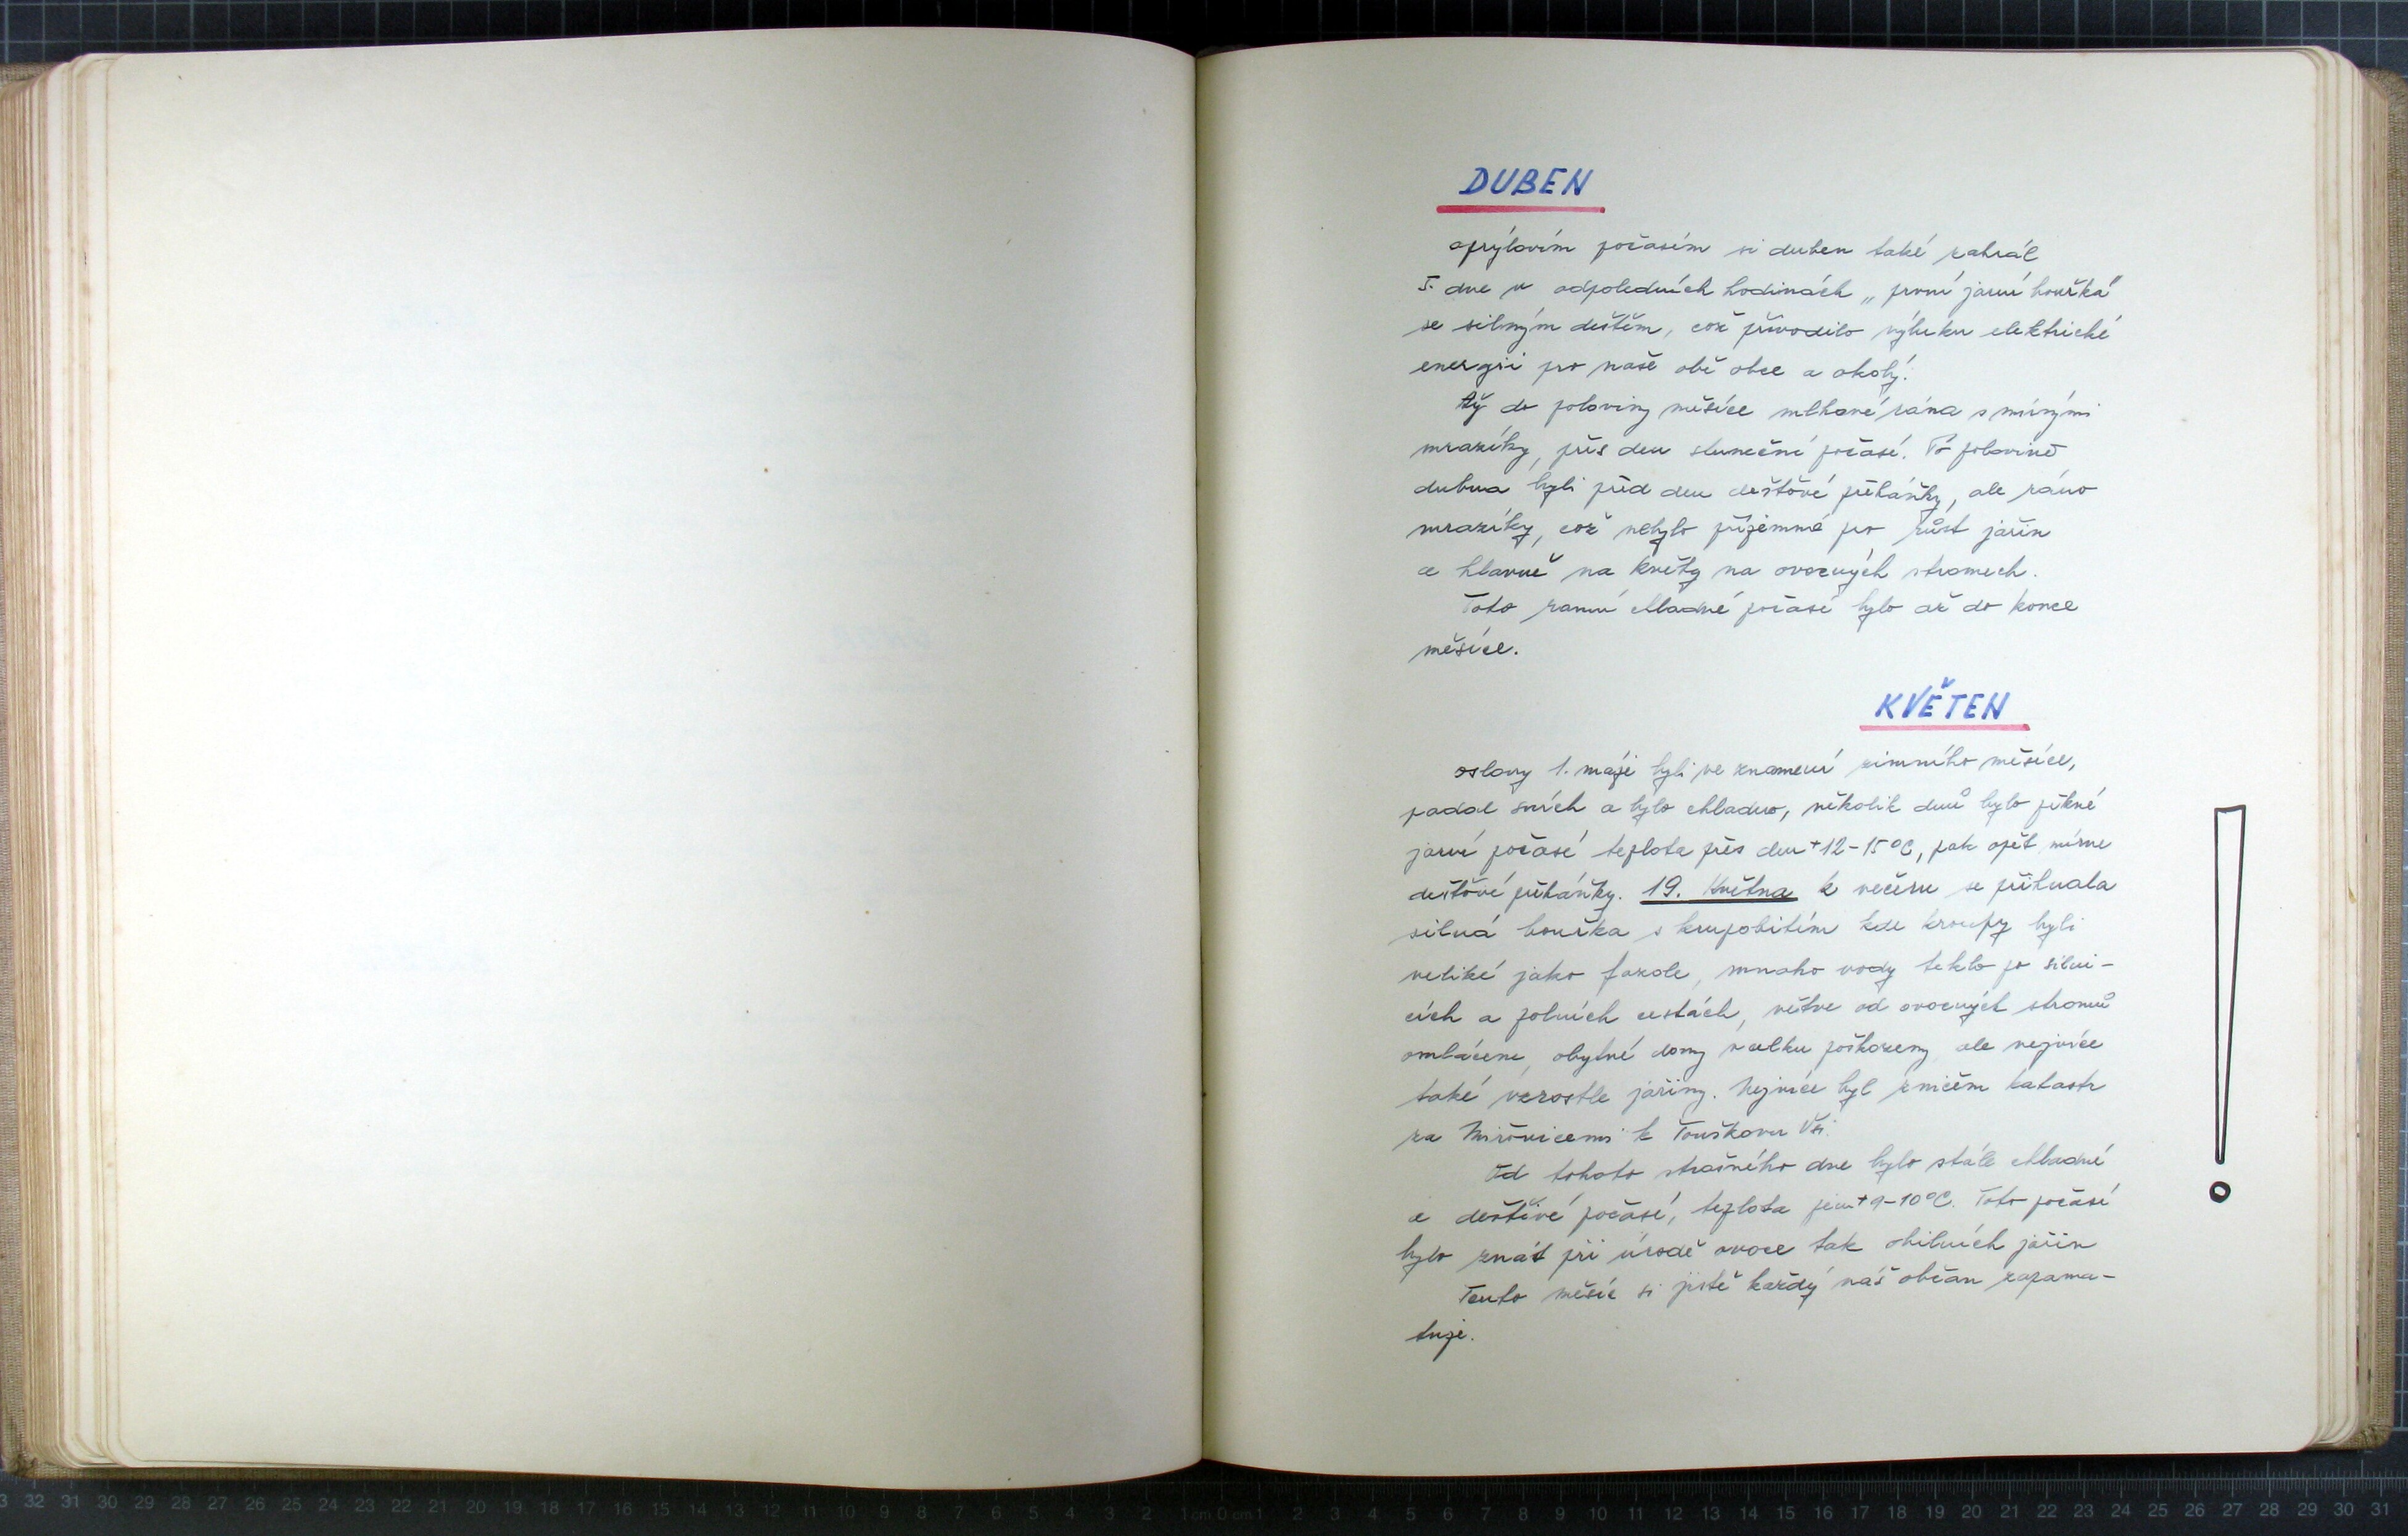 DUBEN
aprýlovím počasím si duben také zahrál
5. dne v odpoledních hodinách „první jarní bouřka"
se silným deštěm, což přivodilo výluku elektrické
energii pro naše obě obce a okolý.
Až do poloviny měsíce mlhavé rána s mírnými
mrazíky, přes den sluneční počasí. Po polovině
dubna byli před den dešťové přeháňky, ale ráno
mrazíky, což nebylo příjemné po růst jařin
a hlavně na květy na ovocných stromech.
Toto ranní chladné počasí bylo až do konce
měsíce.
KVĚTEN
oslavy 1. máje byli ve znamení zimního měsíce,
padal sních a bylo chladno, několik dnů bylo pěkné
jarní počasí teplota přes den +12-15°C, pak opět mírne
dešťové přeháňky. 19. Května k večeru se přihnala
silná bouřka s krupobitím kde kroupy byli
veliké jako fazole, mnoho vody teklo po silni-
cích a polních cestách, větve od ovocných stromů
omláceni, obytné domy v celku poškozeny, ale nejvíce
také vzrostle jařiny. Nejvíce byl zničěn katastr
za Mirovicemi k Touškovu Vsi.
Od tohoto strašného dne bylo stále chladné
a deštivé počasí, teplota jen +9-10°C. Toto počasí
bylo znát při úrodě ovoce tak obilních jařin
Tento měsíc si jistě každý náš občan zapama-
tuje.
33 32 31 30 29 28 27 26 25 24 23 22 21 20 19 18 17 16 15 14 13 12 11 10 9 8 7 6 5 4 3 2 1 cm 0 cm 1 2 3 4 5 6 7 8 9 10 11 12 13 14 15 16 17 18 19 20 21 22 23 24 25 26 27 28 29 30 31